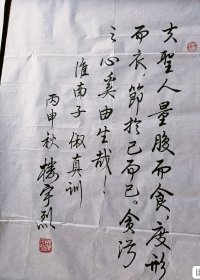 夫聖人量腹而食，度形
而衣，節於己而已，貪污
之心奚由生哉！
淮南子俶真訓
丙申秋
楼宇烈